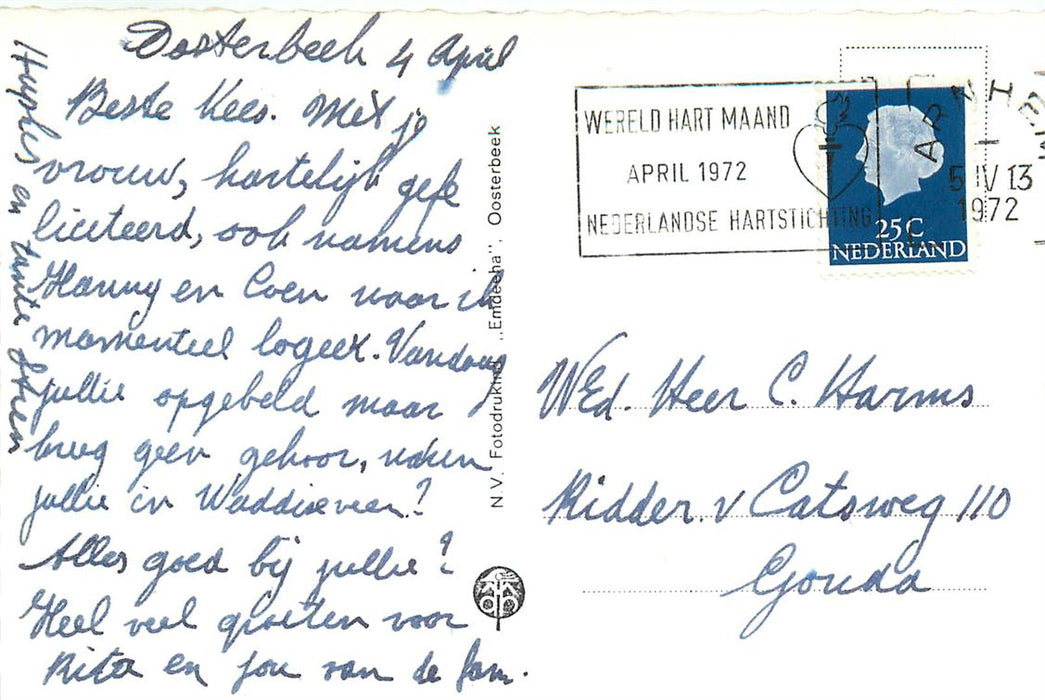 Oosterbeek 4 April
Beste Kees. Met je
vrouw, hartelijk gefe
liciteerd, ook namens
Hanny en Coen waar ik
momenteel logeer. Vandaag
jullie opgebeld maar
kreeg geen gehoor, waren
jullie in Waddinxveen?
Alles goed bij jullie?
Heel veel groeten voor
Rita en jou van de fam.
en tante
N.V. Fotodrukind. „Emdeeha”, Oosterbeek
WERELD HART MAAND
APRIL 1972
NEDERLANDSE HARTSTICHTING
ARNHEM
5 IV 13
1972
25C
NEDERLAND
WEd. Heer C. Harms
Ridder. v Catsweg 110
Gouda